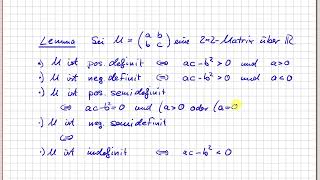 Lemma Sei M = (a b b c) eine 2×2-Matrix über ℝ
•) M ist pos. definit ⇔ ac-b²>0 und a>0
•) M ist neg. definit ⇔ ac-b²>0 und a<0
•) M ist pos. semidefinit
⇔ ac-b²=0 und (a>0 oder (a=0
•) M ist neg. semidefinit
⇔
•) M ist indefinit ⇔ ac-b²<0